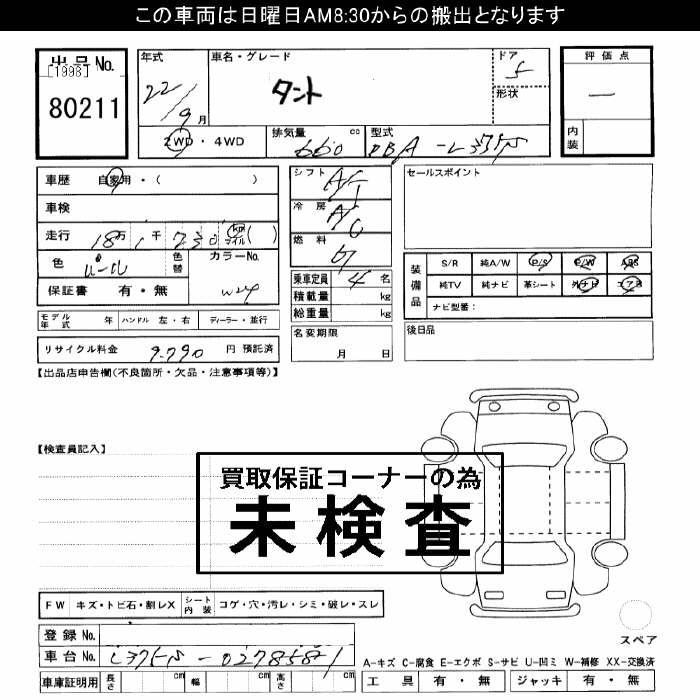 この車両は日曜日AM8:30からの搬出となります
出品No.
[1998]
80211
年式
22/9月
車名・グレード
タント
ドア
5
形状
評価点
—
内装
2WD・4WD
排気量 660 cc
型式 DBA-L375S
車歴 自家用・( )
車検
走行 18万1千230 km マイル( )
色 パール
色替
カラーNo. W24
保証書 有・無
シフト AT
冷房 AC
燃料 ガ
乗車定員 4 名
積載量 kg
総重量 kg
セールスポイント
装備品
S/R 純A/W P/S P/W ABS
純TV 純ナビ 革シート 外ナビ エアB
ナビ型番:
モデル年式 年 ハンドル 左・右 ディーラー・並行
名変期限
月 日
後日品
リサイクル料金 9,790 円 預託済
【出品店申告欄(不良箇所・欠品・注意事項等)】
【検査員記入】
買取保証コーナーの為
未検査
FW キズ・トビ石・割レX シート内装 コゲ・穴・汚レ・シミ・破レ・スレ
スペア
登録No.
車台No. L375S-0278587
A-キズ C-腐食 E-エクボ S-サビ U-凹ミ W-補修 XX-交換済
車庫証明用 長さ cm 幅 cm 高さ cm
工具 有・無 ジャッキ 有・無